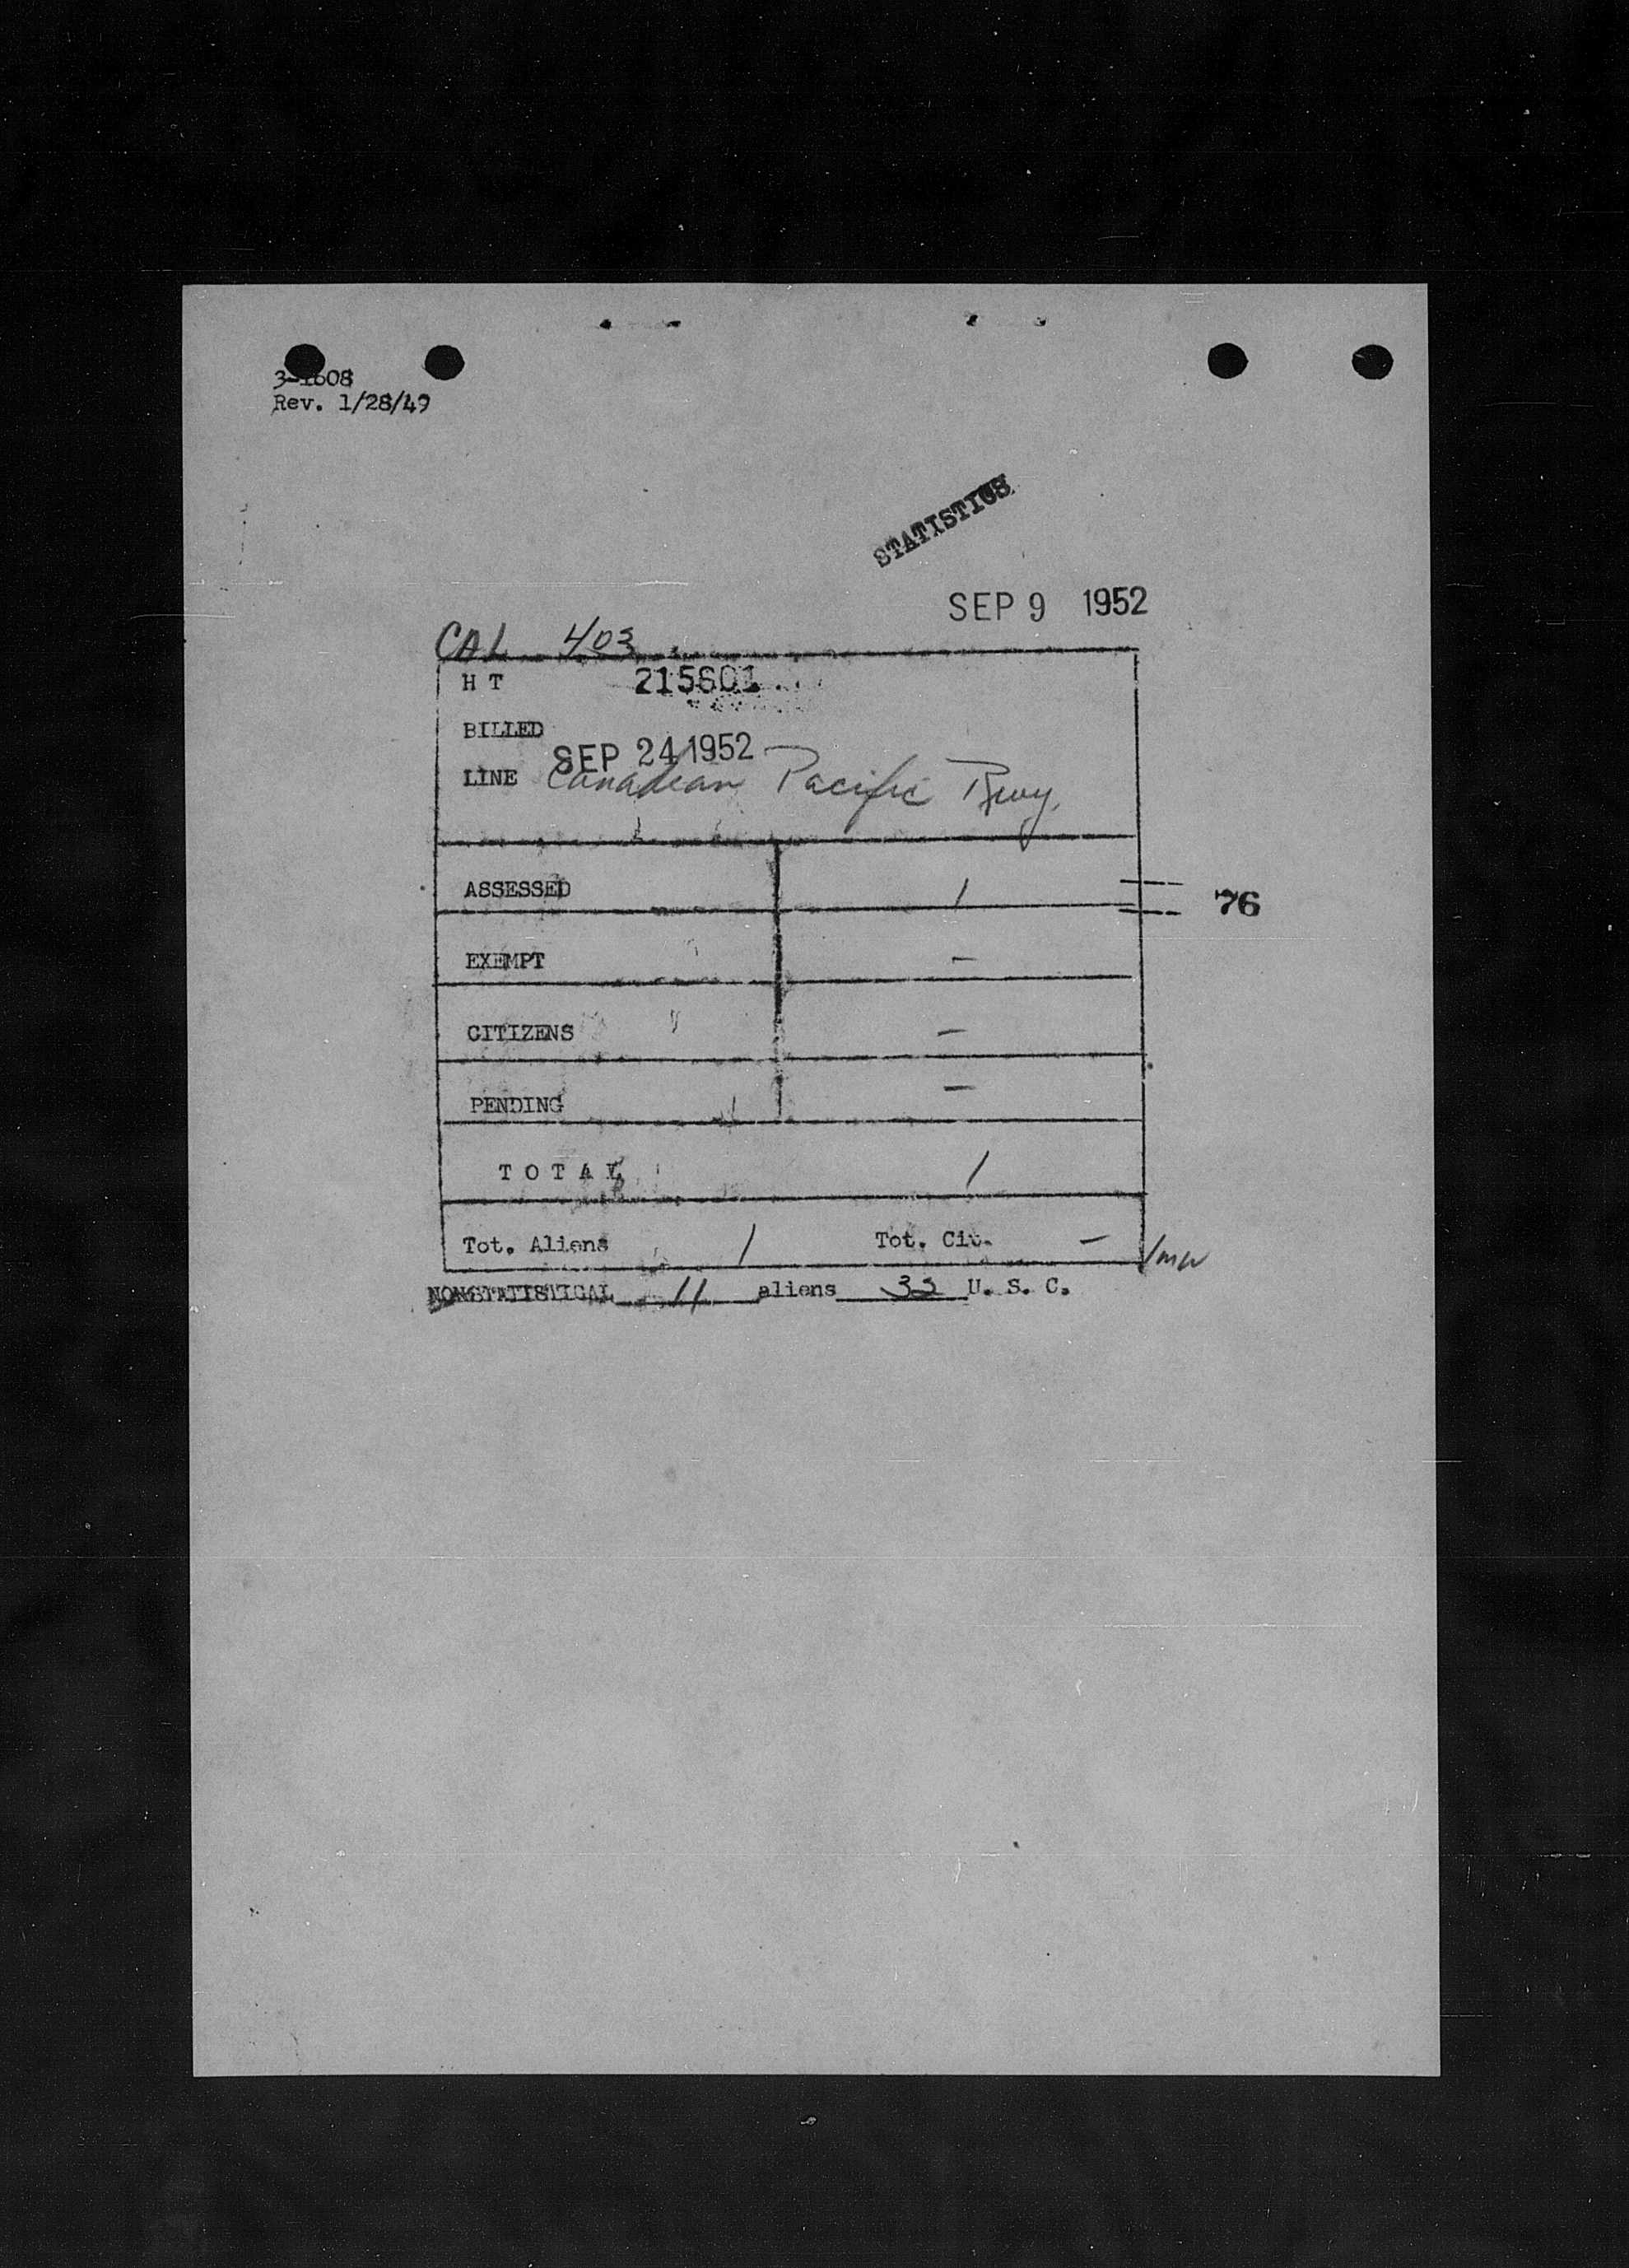 3-1608
Rev. 1/28/49
STATISTICS
SEP 9 1952
CAL 403
H T 215601
BILLED
SEP 24 1952
LINE Canadian Pacific Rwy.
ASSESSED 1
76
EXEMPT -
CITIZENS -
PENDING -
T O T A L 1
Tot. Aliens 1 Tot. Cit. -
NONSTATISTICAL 11 aliens 33 U. S. C.